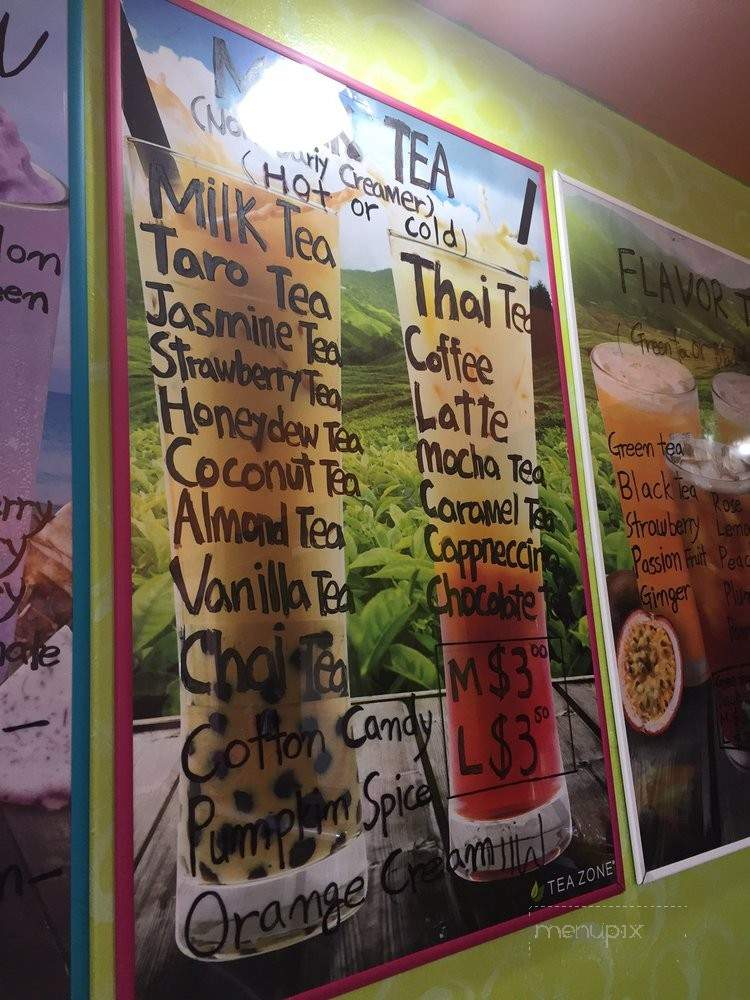 TEA
Creamer)
(Hot or cold)
Milk Tea
Taro Tea
Jasmine Tea
Strawberry Tea
Honeydew Tea
Coconut Tea
Almond Tea
Vanilla Tea
Chai Tea
Cotton Candy
Pumpkin Spice
Orange Cream
Thai Tea
Coffee
Latte
Mocha Tea
Caramel Tea
Cappneccin
Chocolate
M $3.00
L $3.50
TEA ZONE
FLAVOR T
(Green tea or
Green tea
Black Tea
Strawberry
Passion Fruit
Ginger
Rose
Lemo
Peac
Plum
menupix